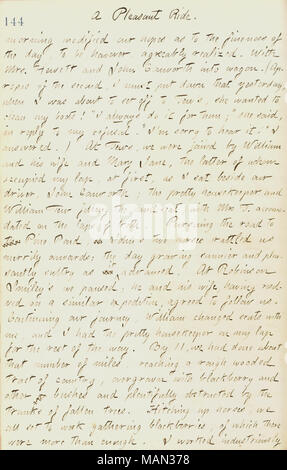 144
A Pleasant Ride.
morning modified our hopes as to the fineness of
the day, to be however agreeably realized. With
Mrs. and John into wagon.
of the second, I must put down that yesterday,
when I was about to set off to Tew's, she wanted to
clean my boots! "I always do it for him;" she said,
in reply to my refusal. "I'm sorry to hear it!" I
answered.) At Tew's, we were joined by William
and his wife and Mary Jane, the latter of whom
occupied my lap, at first, as I sat beside our
driver John; the pretty housekeeper and
William Tew
on the laps of both. Pursuing the road to
Pond
merrily onwards; the day growing sunnier and
as advanced. At Robinson
we paused, he and his wife having
on a similar expedition, agreed to follow us.
Continuing our journey William changed seats with
me, and I had the pretty housekeeper on my lap
for the rest of the way. By 11, we had done about
that number of miles reaching a rough wooded
tract of country, overgrown with blackberry and
other bushes and plentifully obstructed by the
trunks of fallen trees. Hitching up horses, we
all set to work gathering blackberries, of which there
were more than enough. I worked industriously
alamy
Image ID: MAN378
www.alamy.com